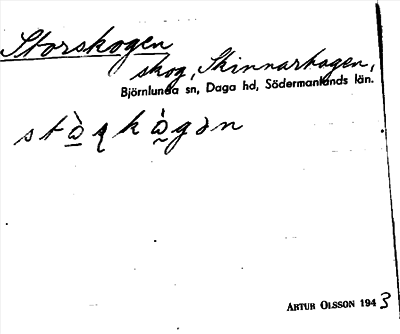 Storskogen
skog, Skinnarhagen,
Björnlunda sn, Daga hd, Södermanlands län.
ARTUR OLSSON 1943